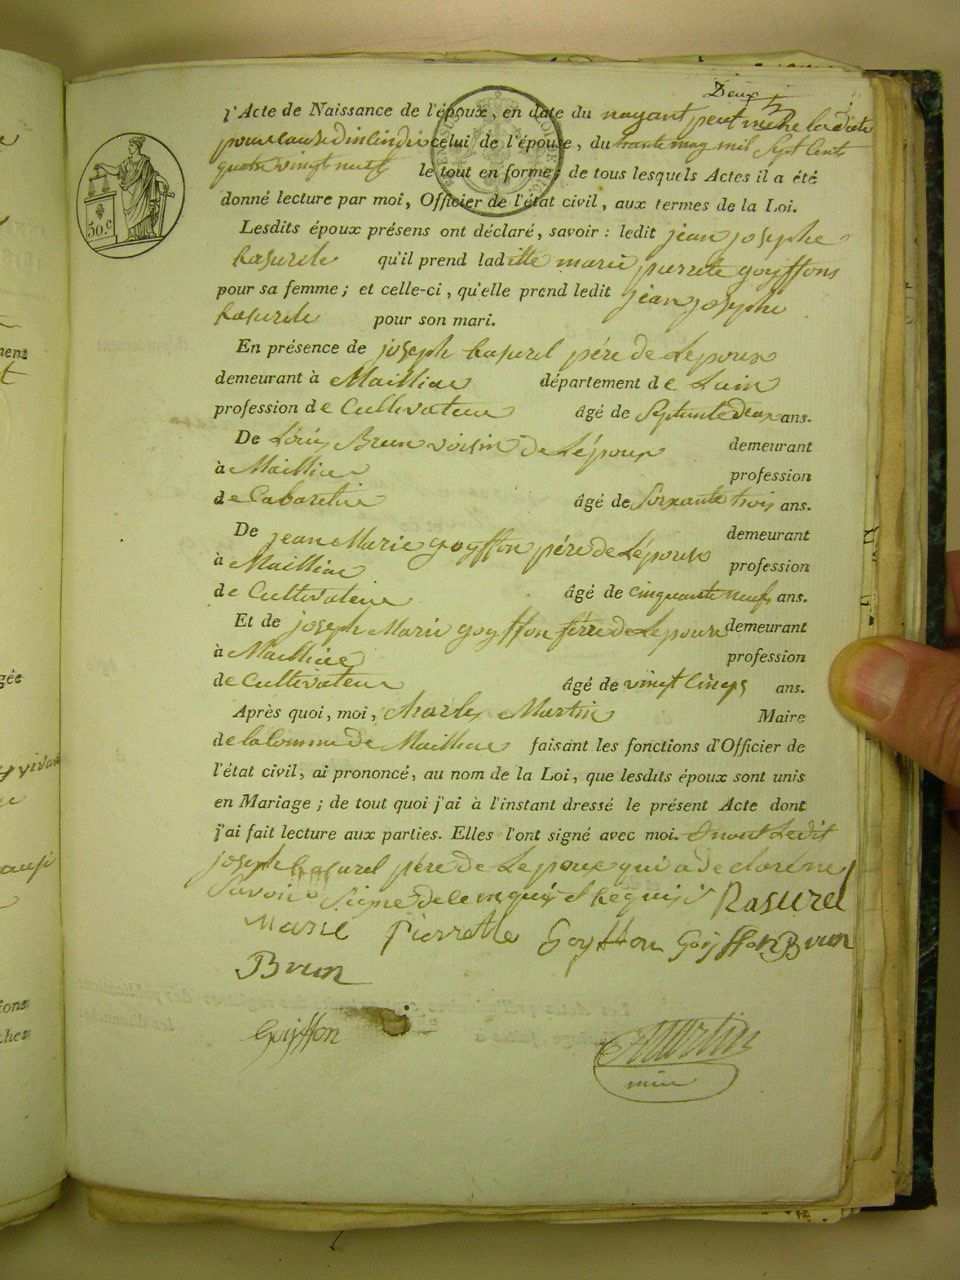 Deux
l'Acte de Naissance de l'époux, en date du nayant peut
pour cause d'incendie celui de l'épouse, du trante may mil Sept Cents
quatre vingt neuf le tout en forme; de tous lesquels Actes il a été
donné lecture par moi, Officier de l'état civil, aux termes de la Loi.
50.c
Lesdits époux présens ont déclaré, savoir : ledit jean josephe
Rasurele qu'il prend ladite marie pierrete goyffons
pour sa femme; et celle-ci, qu'elle prend ledit jean josephe
Rasurele pour son mari.
En présence de joseph Rasurel pére de Lepoux
demeurant à Mailliac département de Luin
profession de Cultivateur âgé de Septante deux ans.
De Brun voisin de Lépoux demeurant
à Mailliac profession
de Cabaretier âgé de Soixante trois ans.
De jean Marie goyffon pére de Lépouse demeurant
à Mailliac profession
de Cultivateur âgé de cinquante neuf ans.
Et de joseph Marie goyffon frère de Lepouse demeurant
à Mailliac profession
de Cultivateur âgé de vingt cinq ans.
Après quoi, moi, Charles Martin Maire
de la Commune de Mailliac faisant les fonctions d'Officier de
l'état civil, ai prononcé, au nom de la Loi, que lesdits époux sont unis
en Mariage; de tout quoi j'ai à l'instant dressé le présent Acte dont
j'ai fait lecture aux parties. Elles l'ont signé avec moi. Ledit
joseph Rasurel pére de Lepoux qui a declaré ne
Savoir Signe de ce enquis et Requis Rasurel
Marie Pierrette Goyffon Goiffon Brun
Brun
Goiffon
Martin